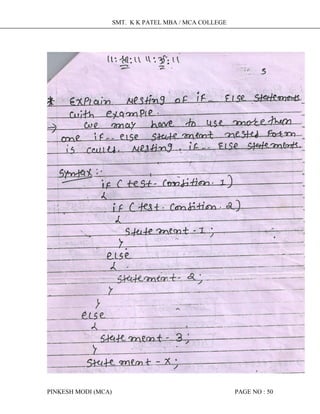 SMT. K K PATEL MBA / MCA COLLEGE
5
* Explain Nesting of if-- Else Statements
with example.
→ we may have to use more then
one if-- else statement nested form
is called. Nesting. if-- Else statements.
Syntax :-
if ( test-condition. 1)
{
if ( test- condition. 2)
{
Statement - 1 ;
}
else
{
statement- 2;
}
}
else
{
statement - 3;
}
statement - x;
PINKESH MODI (MCA) PAGE NO : 50